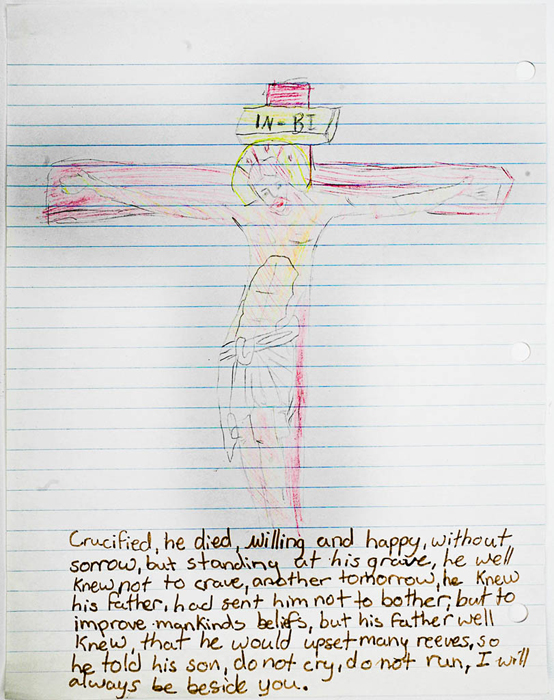 IN-BI
Crucified, he died, willing and happy, without
sorrow, but standing at his grave, he well
knew not to crave, another tomorrow, he knew
his father, had sent him not to bother, but to
improve mankinds beliefs, but his father well
knew, that he would upset many reeves, so
he told his son, do not cry, do not run, I will
always be beside you.